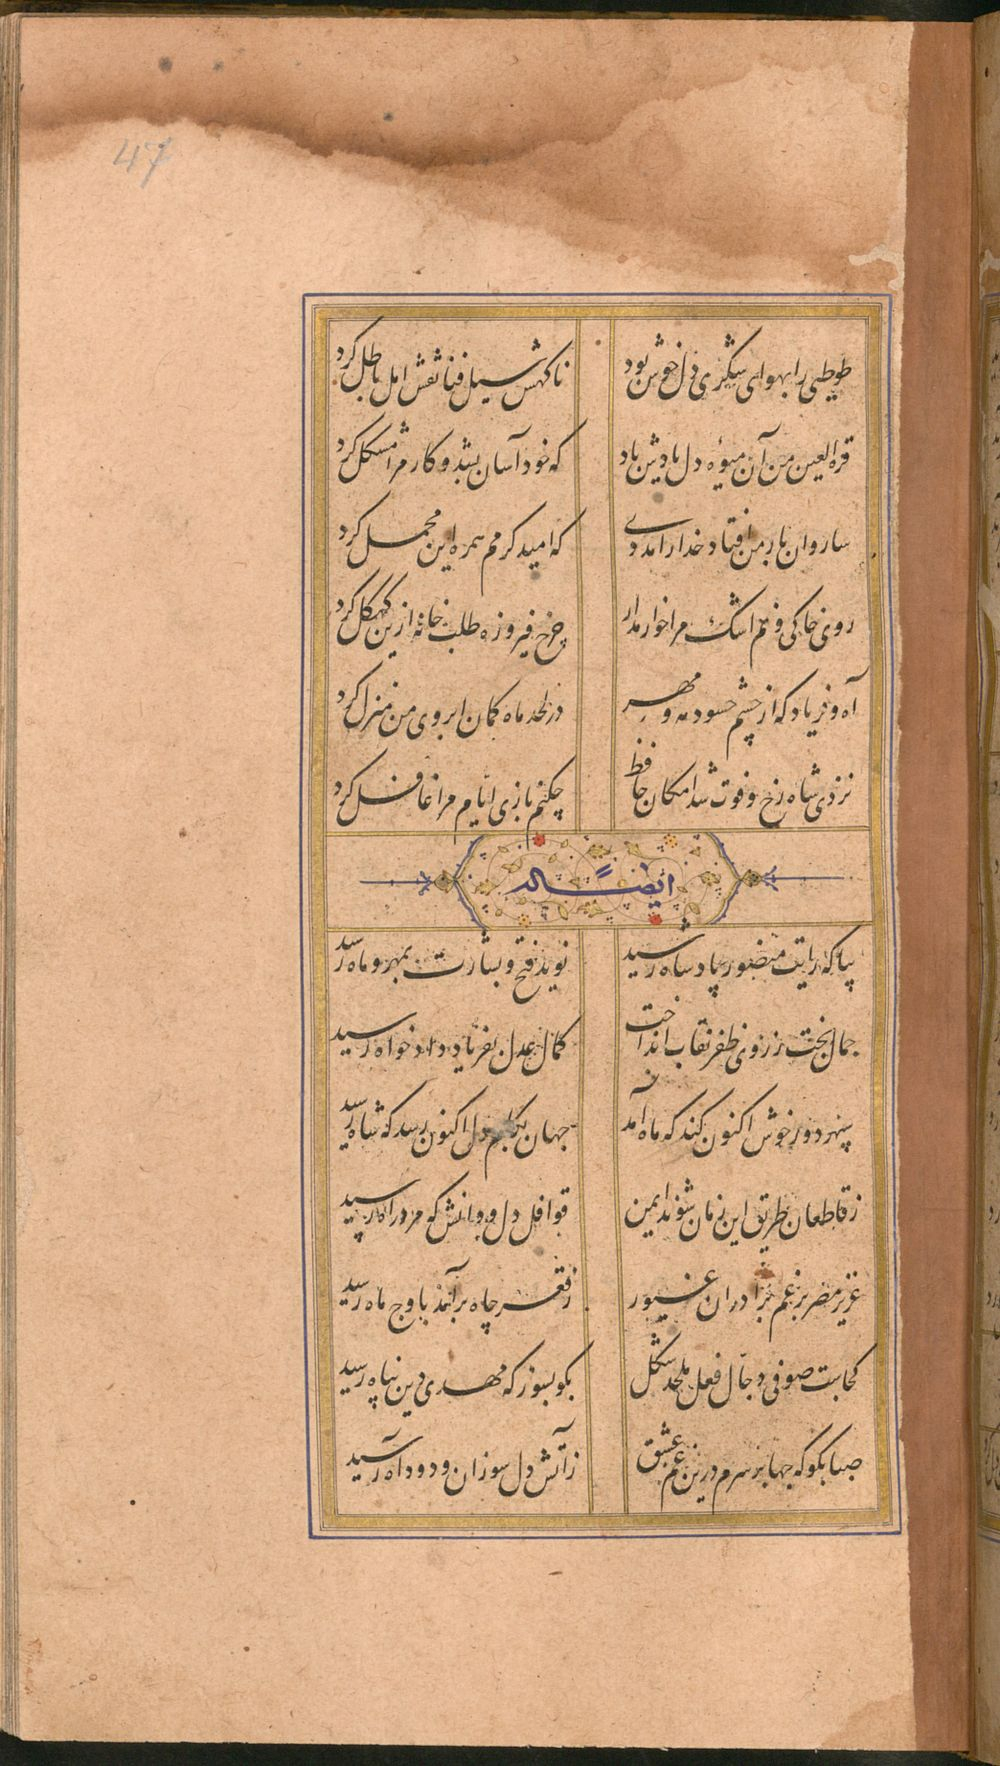 47
طوطیی را بهوای شکری دل خوش بود ناکهش سیل فنا نقش امل باطل کرد
قرة العین من آن میوهٔ دل یادش باد که خود آسان بشد و کار مرا مشکل کرد
ساروان بار من افتاد خدا را مددی که امید کرمم همره این محمل کرد
روی خاکی و نم اشک مرا خوار مدار چرخ فیروزه طلب خانه ازین کهکل کرد
آه و فریاد که از چشم حسود مه و مهر در لحد ماه کمان ابروی من منزل کرد
نزدی شاه رخ و فوت شد امکان حافظ چکنم بازی ایام مرا غافل کرد
ایضاً له
بیا که رایت منصور پادشاه رسید نوید فتح و بشارت بمهر و ماه رسید
جمال بخت ز روی ظفر نقاب انداخت کمال عدل بفریاد دادخواه رسید
سپهر دور خوش اکنون کند که ماه آمد جهان بکام دل اکنون رسد که شاه رسید
ز قاطعان طریق این زمان شوند ایمن قوافل دل و دانش که مرد راه رسید
عزیز مصر برغم برادران غیور ز قعر چاه برآمد باوج ماه رسید
کجاست صوفی دجال فعل ملحد شکل بکو بسوز که مهدی دین پناه رسید
صبا بکو که چها بر سرم درین غم عشق ز آتش دل سوزان و دود آه رسید